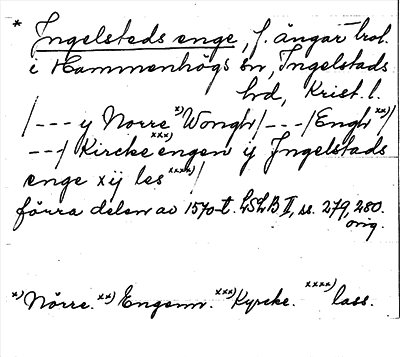 * Ingelsteds enge, f. ängar trol.
i Hammenhögs sn, Ingelstads
hd, Krist. l.
/--- y Norre x) Wongh/---/Engh xx)/
---/ Kircke xxx) engen ij Jngelstads
enge xij les xxxx)/
förra delen av 1570-t. LSLB II, ss. 279, 280.
orig.
x) Nörre. xx) Engenn. xxx) Kyrcke. xxxx) lass.